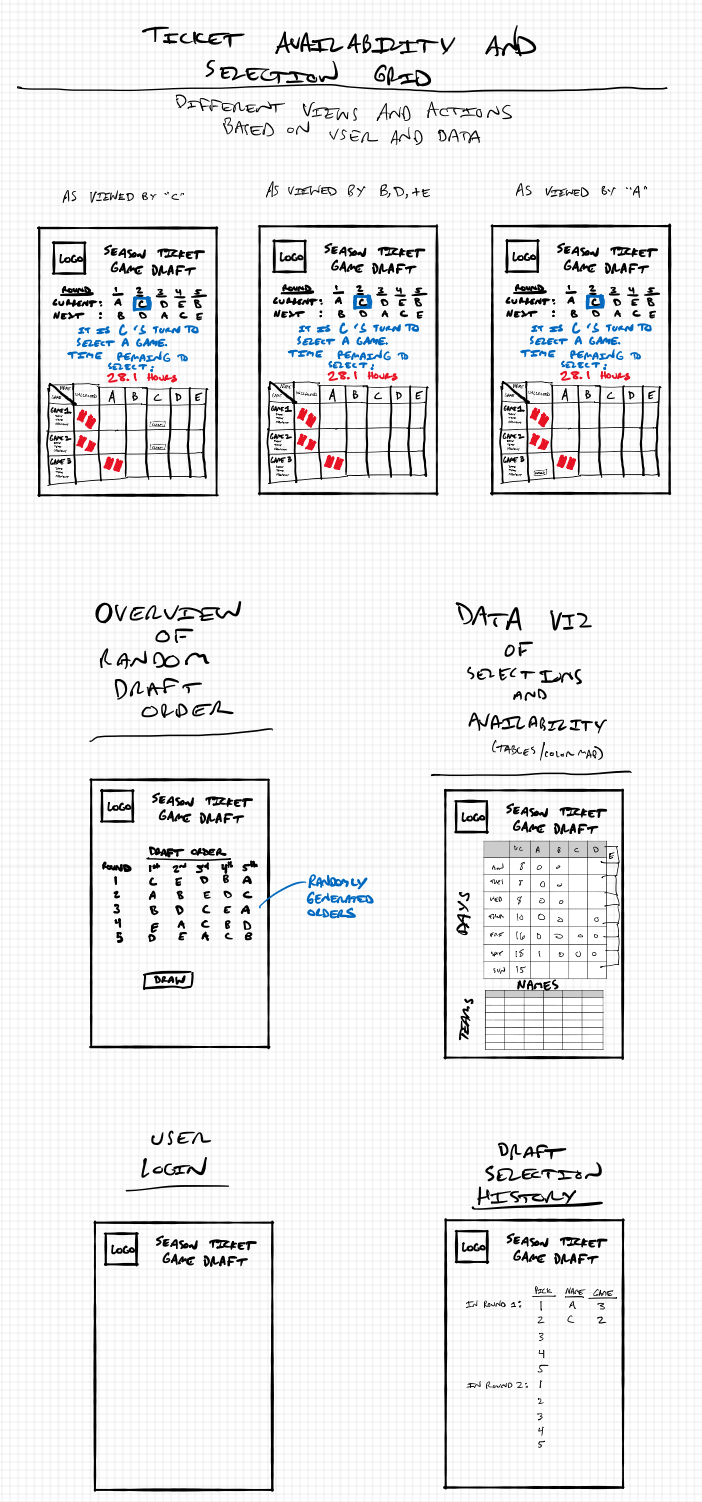 TICKET AVAILABILITY AND
SELECTION GRID
DIFFERENT VIEWS AND ACTIONS
BASED ON USER AND DATA
AS VIEWED BY "C"
LOGO
SEASON TICKET
GAME DRAFT
ROUND 1 2 3 4 5
CURRENT: A C D E B
NEXT: B D A C E
IT IS C'S TURN TO
SELECT A GAME.
TIME REMAING TO
SELECT:
28.1 HOURS
NAME
GAME
A B C D E
GAME 1
GAME 2
GAME 3
AS VIEWED BY B, D, + E
LOGO
SEASON TICKET
GAME DRAFT
ROUND 1 2 3 4 5
CURRENT: A C D E B
NEXT: B D A C E
IT IS C'S TURN TO
SELECT A GAME.
TIME REMAING TO
SELECT:
28.1 HOURS
NAME
GAME
A B C D E
GAME 1
GAME 2
GAME 3
AS VIEWED BY "A"
LOGO
SEASON TICKET
GAME DRAFT
ROUND 1 2 3 4 5
CURRENT: A C D E B
NEXT: B D A C E
IT IS C'S TURN TO
SELECT A GAME.
TIME REMAING TO
SELECT:
28.1 HOURS
NAME
GAME
A B C D E
GAME 1
GAME 2
GAME 3
OVERVIEW
OF
RANDOM
DRAFT
ORDER
LOGO
SEASON TICKET
GAME DRAFT
DRAFT ORDER
ROUND 1st 2nd 3rd 4th 5th
1 C E D B A
2 A B E D C
3 B D C E A
4 E A C B D
5 D E A C B
RANDOMLY
GENERATED
ORDERS
DRAW
DATA VIZ
OF
SELECTIONS
AND
AVAILABILITY
(TABLES/COLOR MAP)
LOGO
SEASON TICKET
GAME DRAFT
DAYS
A B C D E
8 0 0
0 0
WED 8 0 0
10 0 0 0
16 0 0 0 0
SAT 15 1 0 0 0
SUN 15
NAMES
TEAMS
USER
LOGIN
LOGO
SEASON TICKET
GAME DRAFT
DRAFT
SELECTION
HISTORY
LOGO
SEASON TICKET
GAME DRAFT
PICK NAME GAME
IN ROUND 1: 1 A 3
2 C 2
3
4
5
IN ROUND 2: 1
2
3
4
5